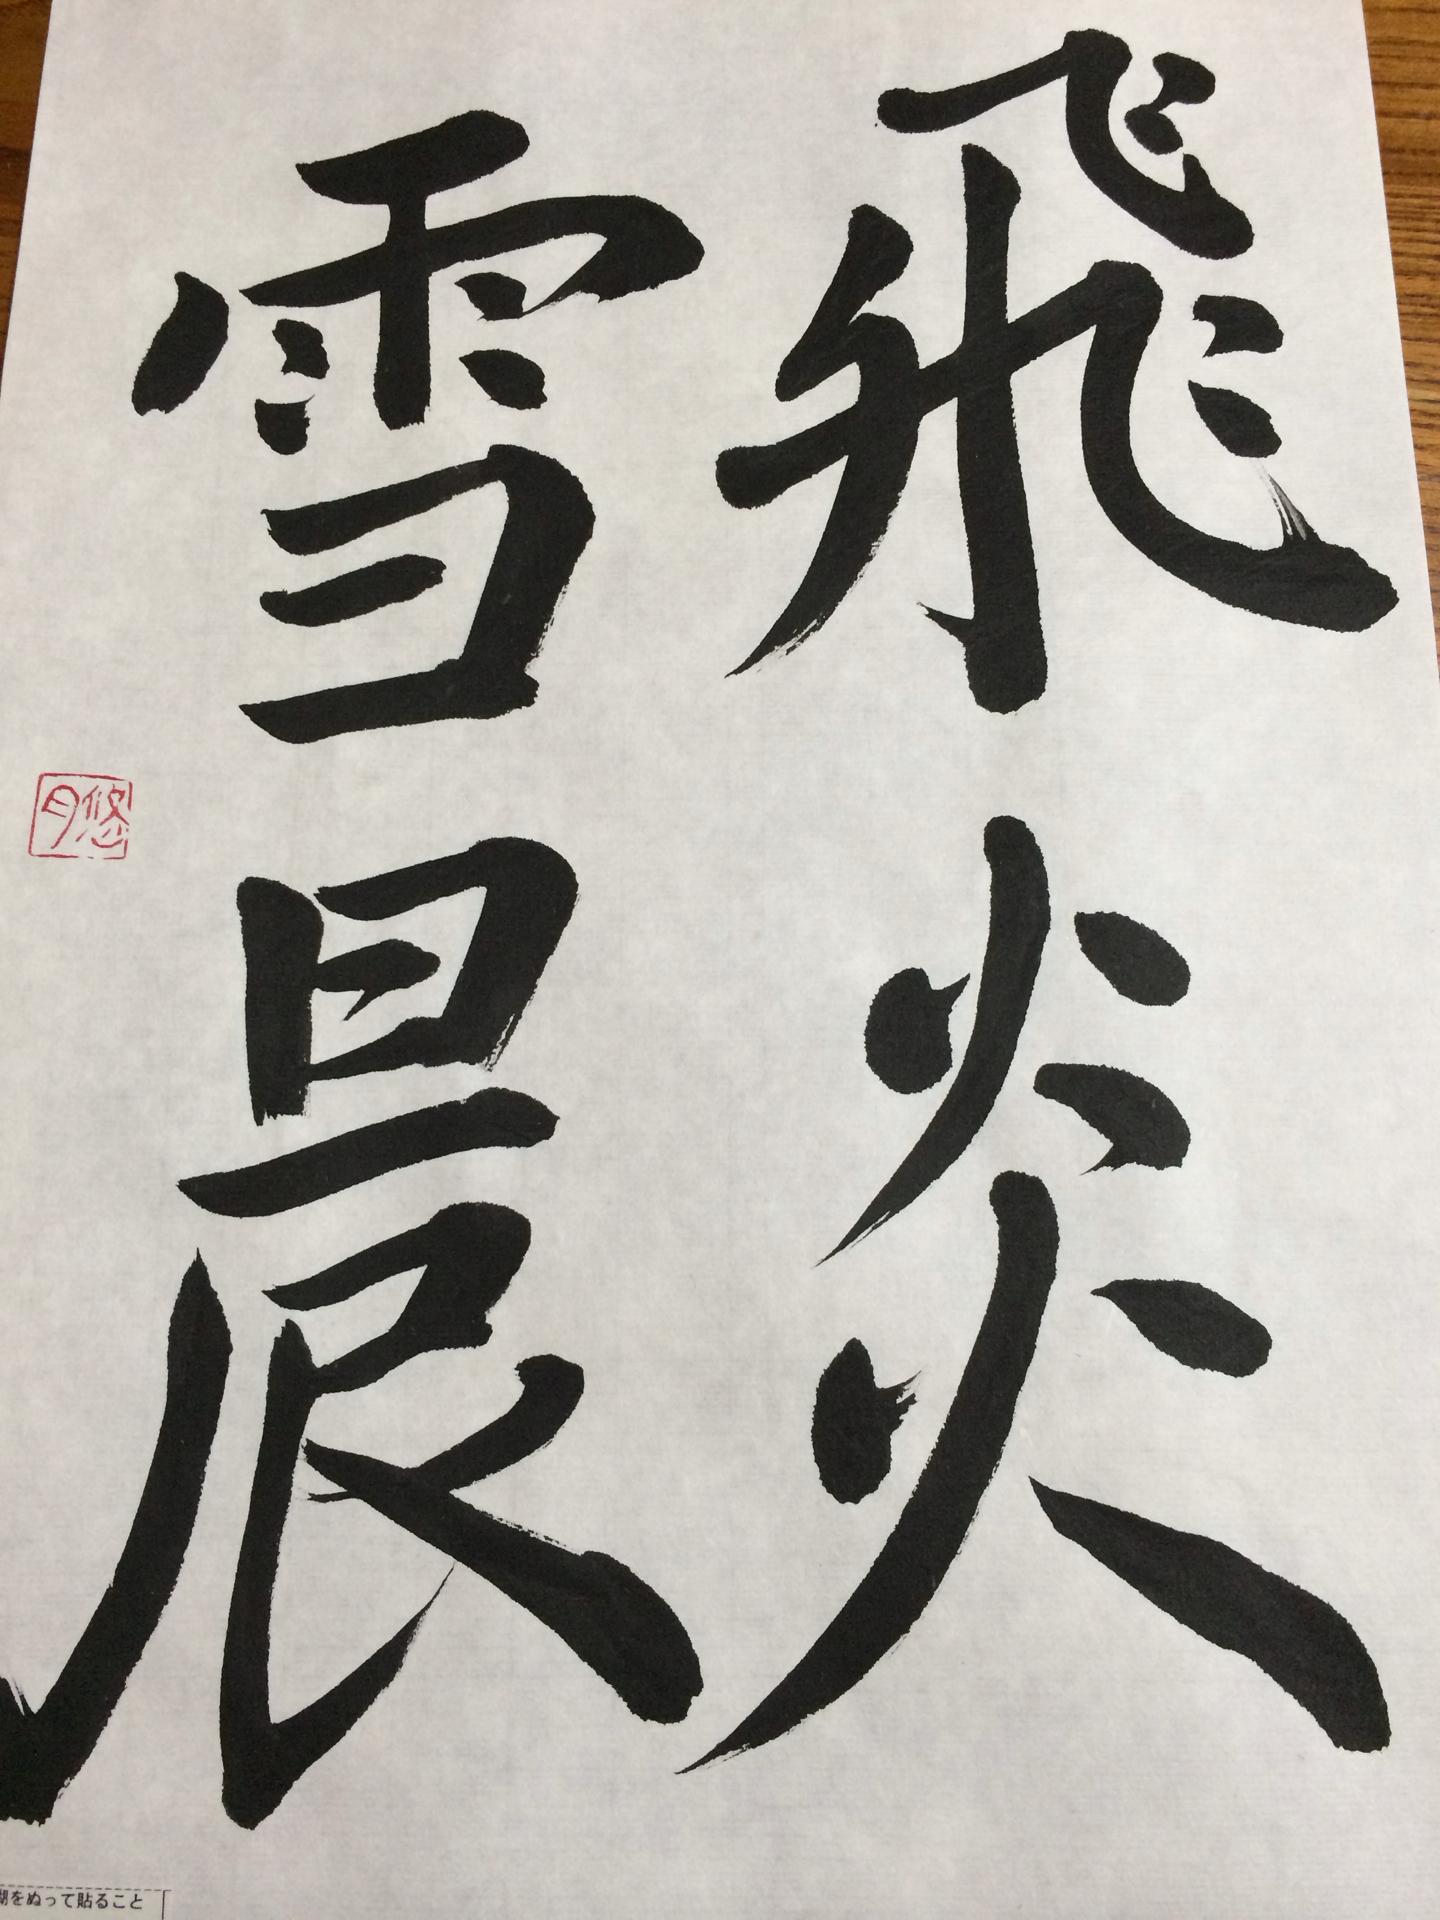 飛炎
雪晨
悠月
糊をぬって貼ること